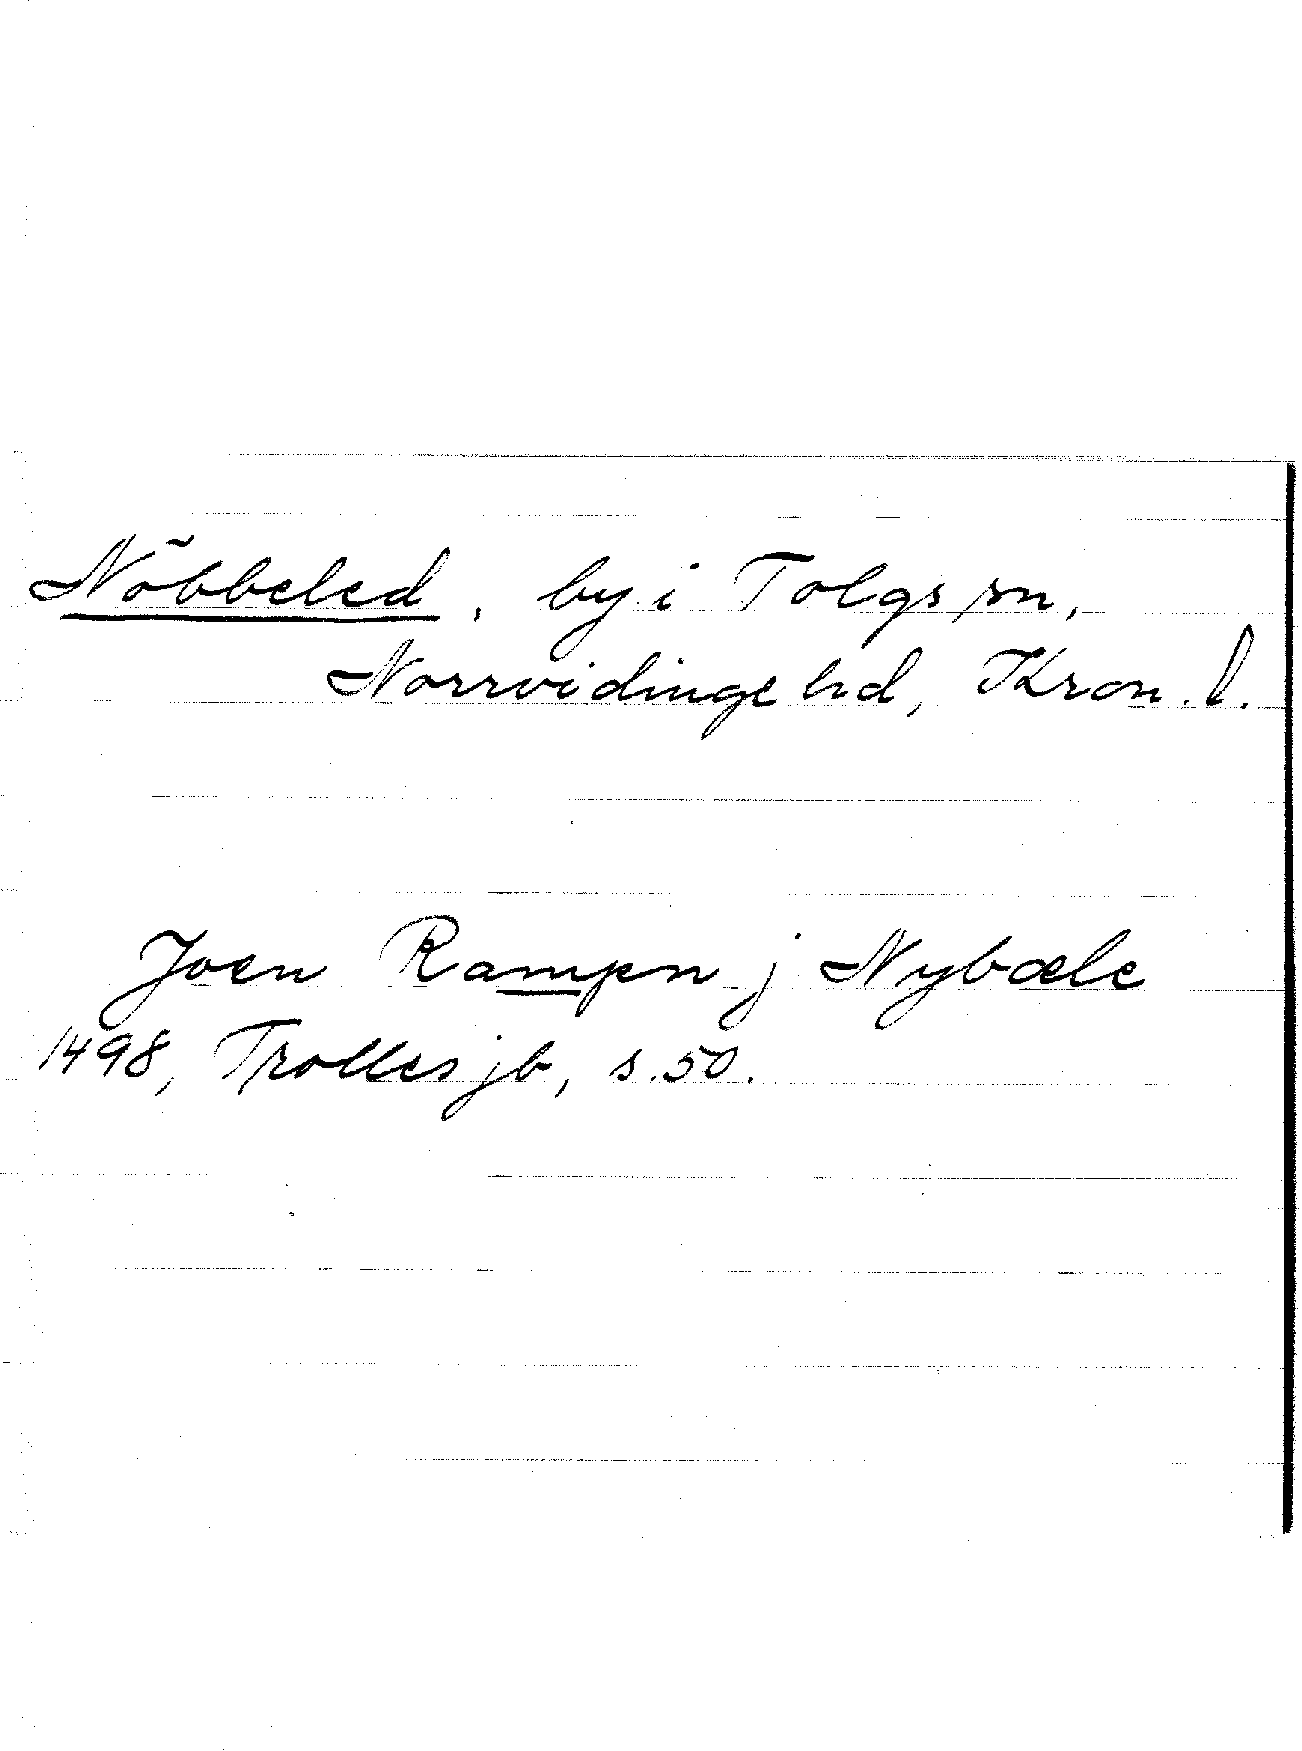 Nöbbeled, by i Tolgs sn,
Norrvidinge hd, Kron. l.
Joen Rampn j Nybæle
1498, Trolles jb, s. 50.